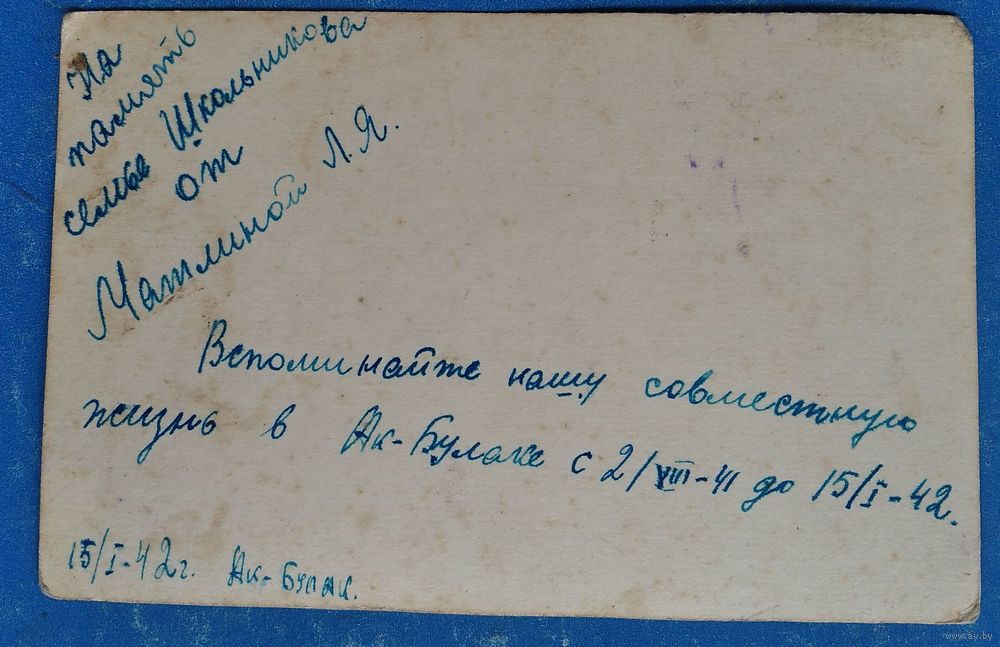 На
память
семье Школьникова
от
Матлиной Л.Я.
Вспоминайте нашу совместную
жизнь в Ак-Булаке с 2/VIII-41 до 15/I-42.
15/I-42г. Ак-Булак.
www.ay.by